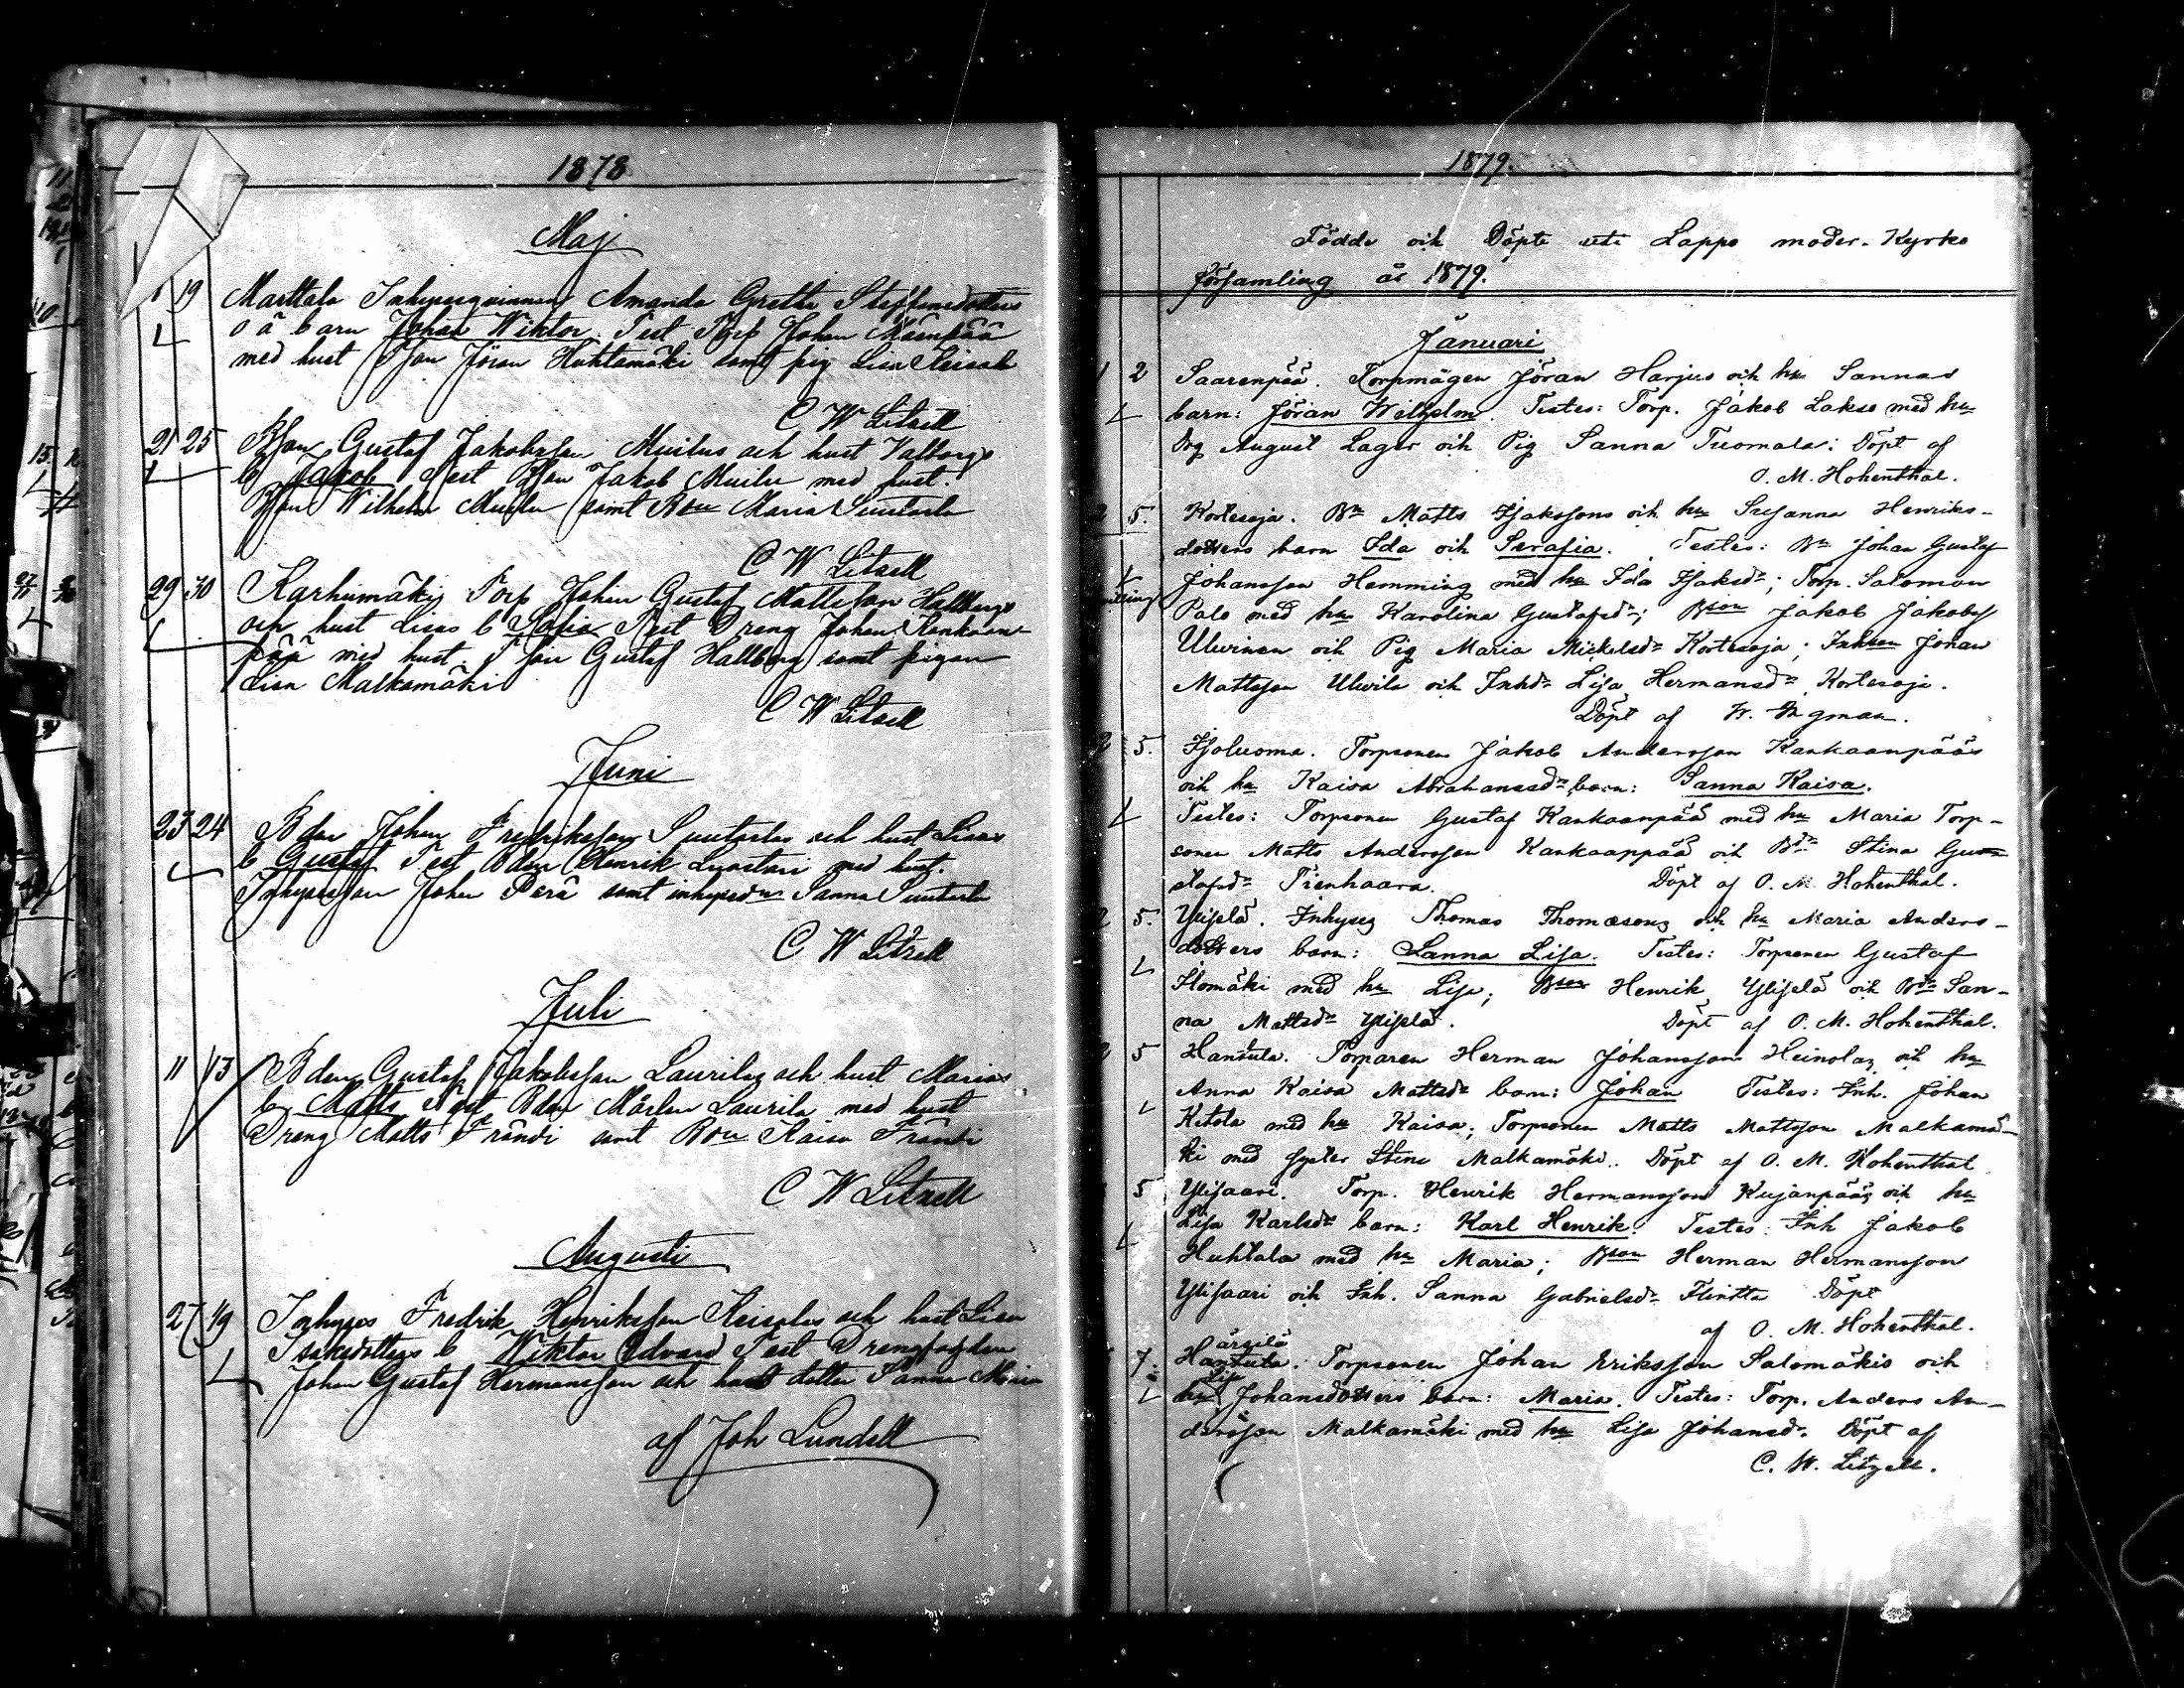 1878
Maj
19 Marttala Inhysesqvinnan Amanda Greta Staffansdotters
o ä barn Johan Wiktor Test Torp Johan Mäenpää
med hust Bson Jöran Huhtamäki samt pig Lisa
C W Litzell
21 25 Bson Gustaf Jakobsson Muilus och hust Valborgs
b Jakob Test Bson Jakob Muilu med hust.
Bson Wilhelm Muilu samt Bdn Maria Suutarla
C W Litzell
29 30 Karhumäki Torp Johan Gustaf Mattsson Hallbergs
och hust Lisas b Sofia Test Dreng Johan Kankaan-
pää med hust. Gustaf Hallberg samt pigan
Lisa Malkamäki
C W Litzell
Juni
23 24 Bdn Johan Fredriksson Suutarlas och hust Lisas
b Gustaf Test Bdn Henrik Luostari med hust.
Inhysesson Johan Perä samt inhysesdn Sanna Suutarla
C W Litzell
Juli
11 13 Bden Gustaf Jakobsson Laurilas och hust Marias
b Matts Test Bdn Mårten Laurila med hust
Dreng Matts Frändi samt Bdn Kaisa Frändi
C W Litzell
Augusti
27 1/9 Inhyses Fredrik Henriksson Keisalas och hust Lisa
Isaksdotters b Wiktor Edvard Test
Johan Gustaf Hermansson och dotter Sanna Maria
af Joh Lundell
1879.
Födde och Döpte uti Lappo moder-Kyrko
församling år 1879.
Januari
1 2 Saarenpää. Torpmågen Jöran Harjus och hu Sannas
barn: Jöran Wilhelm. Testes: Torp. Jakob Lakso med hu
Dg August Lager och Pig Sanna Tuomala: Döpt af
O. M. Hohenthal.
2 5. Kortesoja. Bn Matts Isakssons och hu Susanna Henriks-
dotters barn Ida och Serafia. Testes: Bn Johan Gustaf
Johansson Hemming med hu Ida Isaksdr; Torp. Salomon
Palo med hu Karolina Gustafsdr; Bson Jakob Jakobsf
Ulvinen och Pig Maria Mickelsdr Kortesoja; Inhson Johan
Mattsson Ulvila och Inhdr Lisa Hermansdr Kortesoja.
Döpt af W. Ingman.
2 5. Isoluoma. Torpsonen Jakob Andersson Kankaanpääs
och hu Kaisa Abrahamsdrs barn: Sanna Kaisa.
Testes: Torpsonen Gustaf Kankaanpää med hu Maria Torp-
sonen Matts Andersson Kankaappää och Bdr Stina Gu
stafsdr Tienhaara. Döpt af O. M. Hohenthal.
2 5. Ylijelä. Inhyses Thomas Thomasons och hu Maria Anders-
dotters barn: Sanna Lisa. Testes: Torpsonen Gustaf
Ilomäki med hu Lisa; Bson Henrik Ylijelä och Bdr San-
na Mattsdr Ylijelä. Döpt af O. M. Hohenthal.
2 5 Hantula. Torparen Herman Johansson Heinolas och hu
Anna Kaisa Mattsdrs barn: Johan Testes: Inh. Johan
Ketola med hu Kaisa; Torpsonen Matts Mattsson Malkamä-
ki med syster Stina Malkamäki. Döpt af O. M. Hohenthal
5 Ylisaari. Torp. Henrik Hermansson Kujanpääs och hu
Lisa Karlsdrs barn: Karl Henrik. Testes: Inh Jakob
Huhtala med hu Maria; Bson Herman Hermansson
Ylisaari och Inh. Sanna Gabrielsdr Flintta Döpt
af O. M. Hohenthal.
7. Hantula. Torpsonen Johan Eriksson Salomäkis och
hu Lisa Johansdotters barn: Maria. Testes: Torp. Anders An-
dersson Malkamäki med hu Lisa Johansdr. Döpt af
C. W. Litzell.